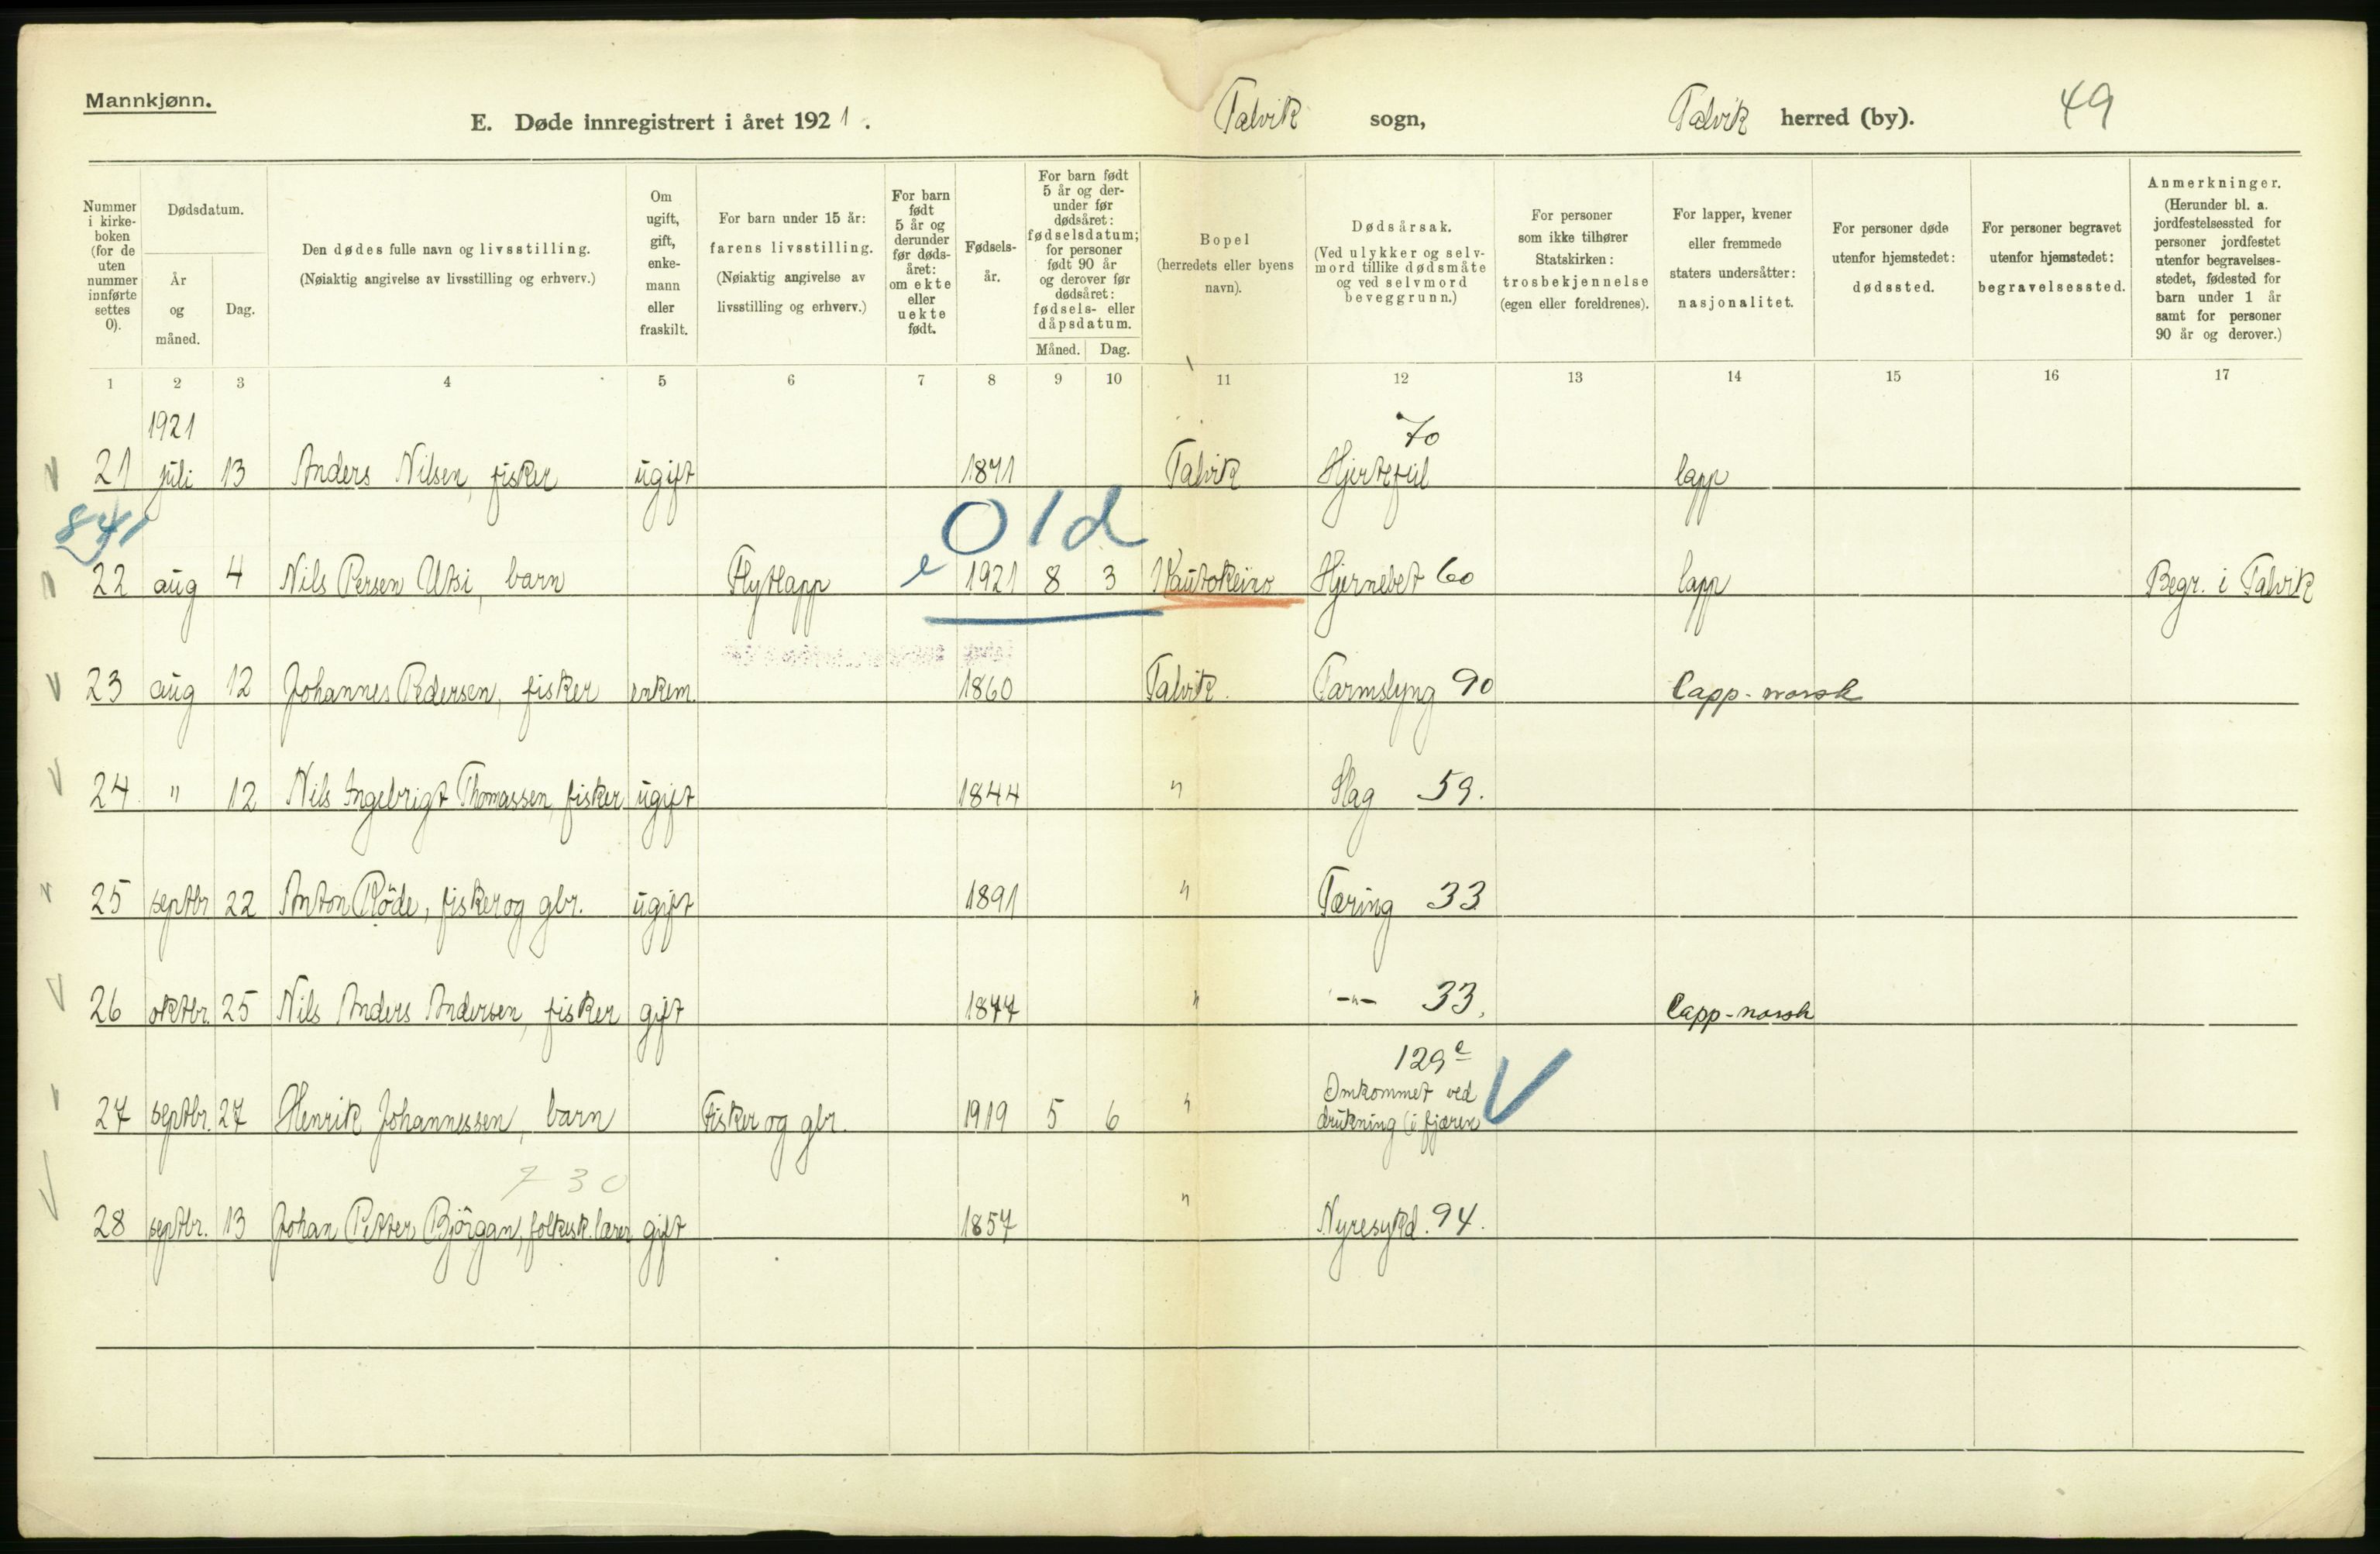 Mannkjønn.
E. Døde innregistrert i året 1921.
Talvik sogn,
Talvik herred (by).
49
Nummer i kirke-boken (for de uten nummer innførte settes 0).
Dødsdatum.
År og måned.
Dag.
Den dødes fulle navn og livsstilling.
(Nøiaktig angivelse av livsstilling og erhverv.)
Om ugift, gift, enke-mann eller fraskilt.
For barn under 15 år:
farens livsstilling.
(Nøiaktig angivelse av livsstilling og erhverv.)
For barn født 5 år og derunder før døds-året: om ekte eller uekte født.
Fødsels-år.
For barn født 5 år og der-under før dødsåret: fødselsdatum; for personer født 90 år og derover før dødsåret: fødsels- eller dåpsdatum.
Måned.
Dag.
Bopel
(herredets eller byens navn).
Dødsårsak.
(Ved ulykker og selv-mord tillike dødsmåte og ved selvmord beveggrunn.)
For personer som ikke tilhører Statskirken:
trosbekjennelse
(egen eller foreldrenes).
For lapper, kvener eller fremmede staters undersåtter:
nasjonalitet.
For personer døde utenfor hjemstedet:
dødssted.
For personer begravet utenfor hjemstedet:
begravelsessted.
Anmerkninger.
(Herunder bl. a. jordfestelsessted for personer jordfestet utenfor begravelses-stedet, fødested for barn under 1 år samt for personer 90 år og derover.)
1 2 3 4 5 6 7 8 9 10 11 12 13 14 15 16 17
1921
70
21 juli 13 Anders Nilsen, fisker ugift 1871 Talvik Hjertefeil lapp
841
Old
22 aug 4 Nils Persen Utsi, barn Flytlapp e 1921 8 3 Kautokeino Hjernebet 60 lapp Begr. i Talvik
23 aug 12 Johannes Pedersen, fisker enkem. 1860 Talvik. Tarmslyng 90 Lapp-norsk
24 " 12 Nils Ingebrigt Thomassen, fisker ugift 1844 " Slag 59.
25 septbr 22 Anton Röde, fisker og gbr. ugift 1891 " Tæring 33
26 oktbr. 25 Nils Anders Andersen, fisker gift 1877 " -"- 33. Lapp-norsk
129 e
Omkommet ved
27 septbr. 27 Henrik Johannessen, barn Fisker og gbr. 1919 5 6 " drukning (i fjæren
730
28 septbr. 13 Johan Petter Björgan, folkesk.lærer gift 1857 " Nyresykd. 94.